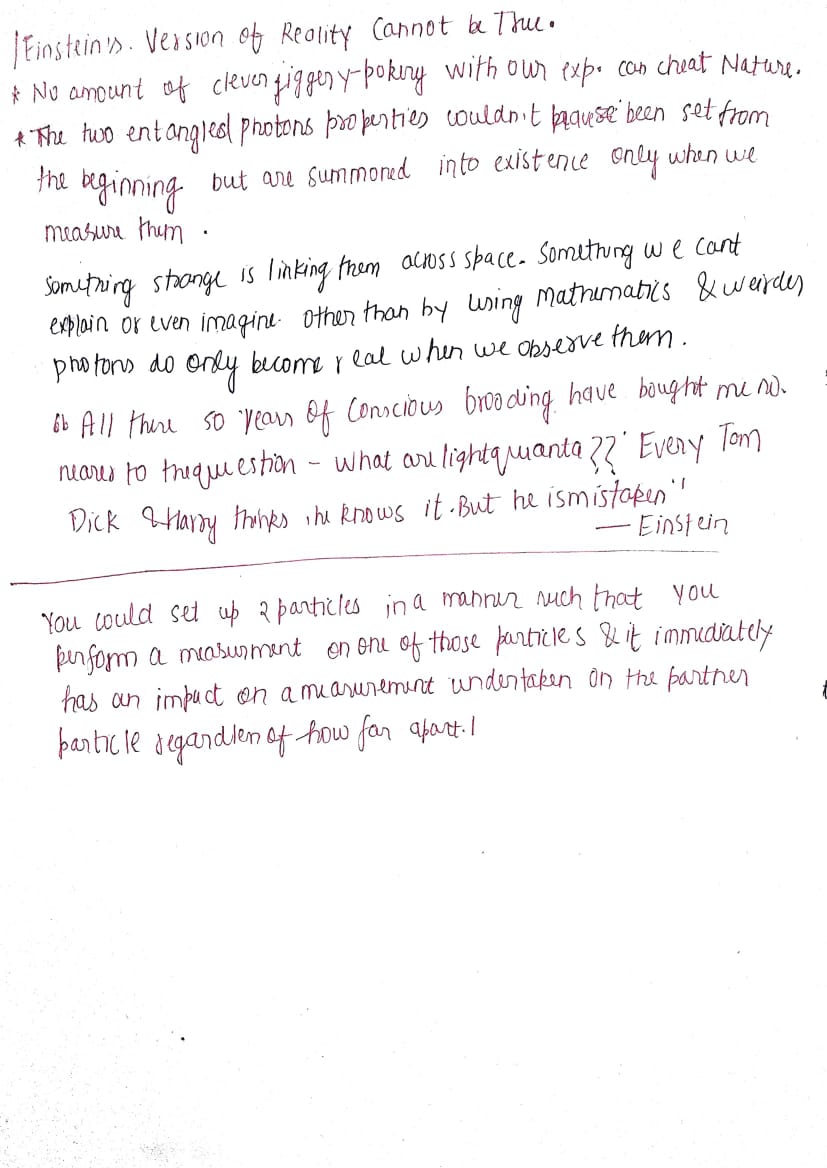 Einstein's. Version of Reality Cannot be True.
* No amount of clever jiggery-pokery with our exp. can cheat Nature.
* The two entangled photons properties couldn't been set from
the beginning but are summoned into existence only when we
measure them .
Something strange is linking them across space. Something we cant
explain or even imagine. other than by using Mathematics & weirdes
photons do only become real when we observe them.
“ All there 50 years of Conscious brooding have bought me no.
nearer to the question - What are light quanta ?? ' Every Tom
Dick & Harry thinks he knows it. But he is mistaken"
— Einstein
You could set up 2 particles in a manner such that you
perform a measurment on one of those particles & it immediately
has an impact on a measurement undertaken on the partner
particle regardless of how far apart.